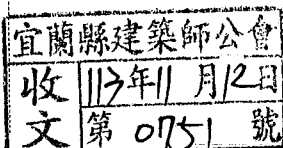 宜蘭縣建築師公會
收文
113年11月12日
第0751號